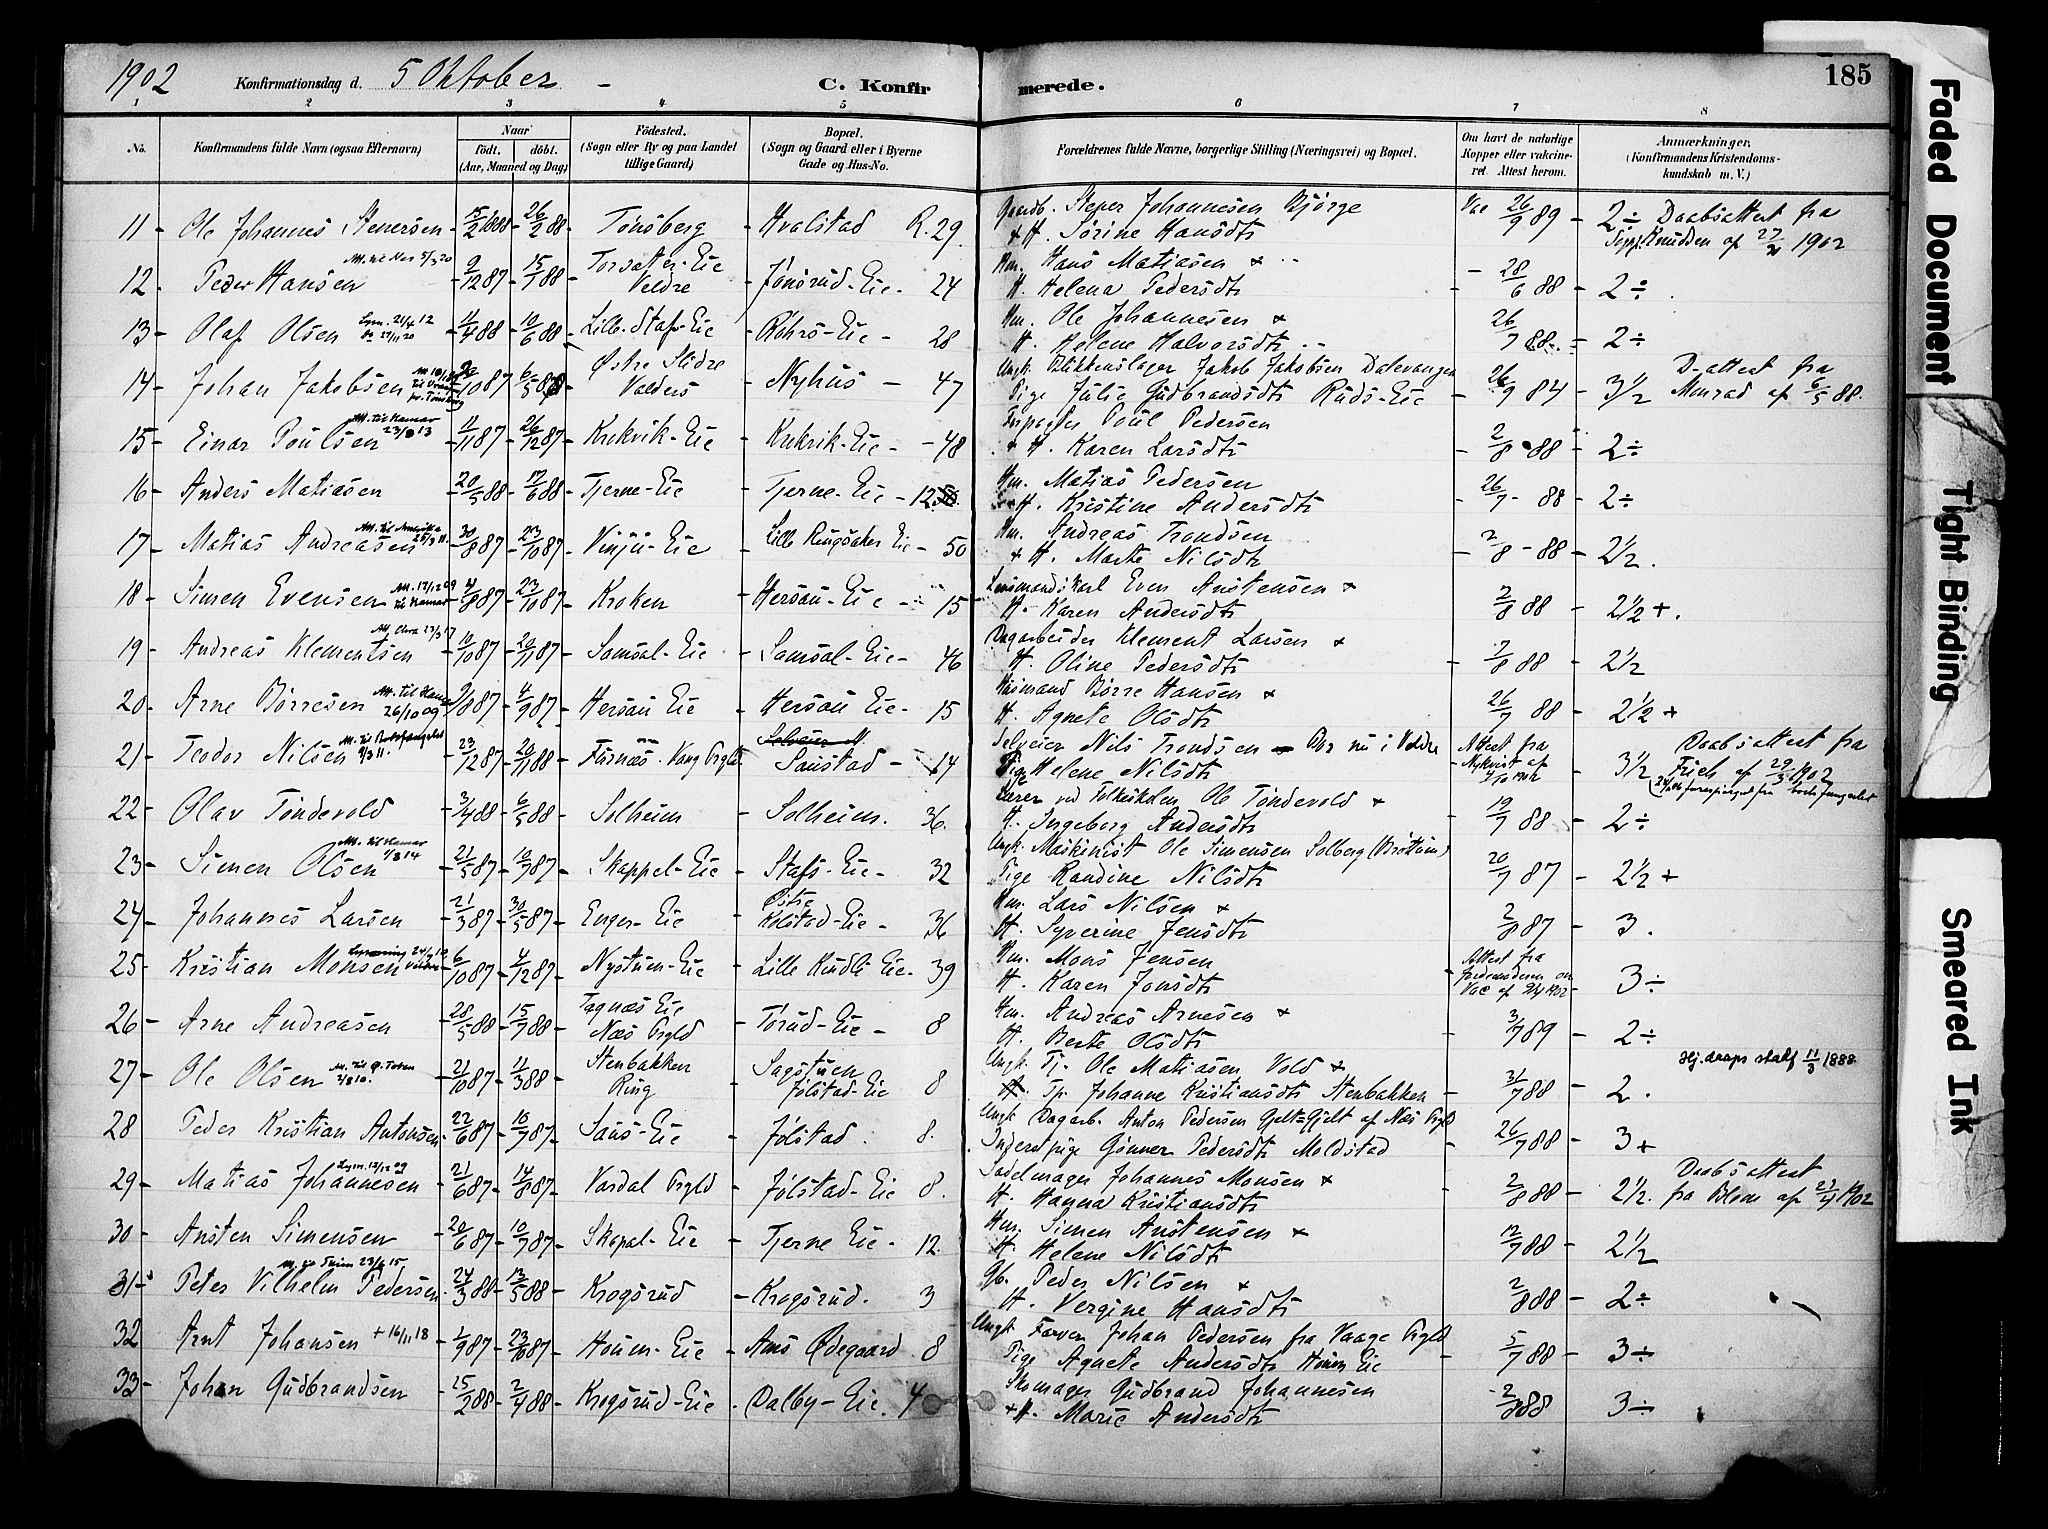 1902 Konfirmationsdag d. 5 Oktober - C. Konfirmerede. 185
1 2 3 4 5 6 7 8
No. Konfirmandens fulde Navn (ogsaa Efternavn) Naar født. døbt. (Aar, Maaned og Dag) Fødested. (Sogn eller By og paa Landet tillige Gaard) Bopæl. (Sogn og Gaard eller i Byerne Gade og Hus-No. Forældrenes fulde Navne, borgerlige Stilling (Næringsvei) og Bopæl. Om havt de naturlige Kopper eller vakcineret Attest herom. Anmærkninger. (Konfirmandens Kristendomskundskab m. V.)
11 - Ole Johannes Stenersen 15/2 1888 26/2 88 Tönsberg Hvalstad R. 29. Gaardb. Stener Johannesen Bjørge Vac 26/9 89 - 2 ÷ Daabsattest fra
+ H. Sörine Hansdtr 1902
12 - Peder Hansen 9/12 87 15/7 88 Veldre Jönsrud-Eie - 24 Hm. Hans Matiasen x 28/6 88 - 2 ÷
H. Helena Pedersdtr
13 - Olaf Olsen 1/4 88 10/6 88 Lille-Staf-Eie Röhrs-Eie - 28 Hm. Ole Johannesen x 26/7 88 2 ÷
H. Helene Halvorsdtr
14 - Johan Jakobsen 10 87 6/5 88 Østre Slidre Valders Nyhus - 47 Ungk. Blikkenslager Jakob Jakobsen Dalevangen 26/9 84 - 3 1/2 D-attest fra
Pige Julie Gudbrandsdtr Ruds-Eie Monrad af 6/5 88.
15 - Einar Poulsen Att. til Hamar 1/11 87 26/12 87 Krekvik-Eie Krekvik-Eie - 48 Forpagter Poul Pedersen 2/8 - 88 - 2 ÷
+ H. Karen Larsdtr
16 - Anders Matiasen 20/5 88 17/6 88 Tjerne-Eie Tjerne-Eie - 12 Hm. Matias Pedersen 26/7 - 88 - 2 ÷
H. Kristine Andersdtr
17 - Matias Andreasen Att. til Amerika 30/8 87 23/10 87 Vinju-Eie Lille Ringsaker Eie - 50 Hm. Andreas Trondsen 2/8 - 88 - 2 1/2.
+ H. Marte Nilsdtr
18 - Simen Evensen Att. 17/12 09 til Hamar 4/8 87 23/10 87 Kroken Hersau-Eie - 15 Lensmandskarl Even Anstensen x 2/8 88 - 2 1/2 +.
H. Karen Andersdtr
19 - Andreas Klementsen 10/10 87 20/11 87 Samsal-Eie Samsal-Eie - 46 Dagarbeider Klement Larsen x 2/8 88 - 2 1/2
H. Oline Pedersdtr
20 - Arne Börresen Att. til Hamar 26/10 09 9/8 87 4/9 87 Hersau Eie Hersau Eie - 15 Husmand Börre Hansen x 26/7 88 - 2 1/2 +
H. Agnete Olsdtr
21 - Teodor Nilsen 23/12 87 20/11 88 Furnæs Vang Prgld Saustad - 14 Selveier Nils Trondsen - Bor nu i Veldre Attest fra Nykvist af - 3 1/2 Daabsattest fra
Pige Helene Nilsdtr Frich af 29/3 1902
22 - Olav Töndevold 3/4 88 6/5 88 Solheim Solheim. 36. Lærer ved Folkeskolen Ole Töndevold x 19/7 88 - 2 ÷
H. Ingeborg Andersdtr
23 - Simen Olsen Att. til Hamar 1/8 14 21/5 87 10/7 87 Skappel-Eie Stafs-Eie - 32 Ungk. Maskinist Ole Simensen Solberg (Brøttum) 20/7 87 - 2 1/2 +
Pige Randine Nilsdtr
24 - Johannes Larsen 21/3 87 30/5 87 Enger-Eie Østre Kolstad-Eie - 36 Hm. Lars Nilsen x 2/8 87 - 3.
H. Syverine Jensdtr
25 - Kristian Monsen 6/10 87 4/12 87 Nystuen-Eie Lille Kindli Eie - 39 Hm. Mons Jensen Attest fra jordemoderen om Vac af 1902 - 3 ÷
H. Karen Jonsdtr
26 - Arne Andreasen 20/5 88 15/7 88 Tagnæs Eie Næs Prgld Torud-Eie - 8 Hm. Andreas Arnesen x 3/7 89 - 2 ÷
H. Berte Olsdtr
27 - Ole Olsen 21/10 87 11/3 88 Stenbakken Ring Sagstuen Jølstad-Eie 8 Ungk. Tj. Ole Matiasen Vold x 31/7 88 - 2. Hj. daaps stadf 11/3 1888
Tp. Johanne Kristiansdtr Stenbakken
28 Peder Kristian Antonsen 22/6 87 10/7 87 Saus-Eie Jølstad. 8. Ungk Dagarb. Anton Pedersen Gjelt-Gjelt af Næs Prgld 26/7 88 - 3 +
Inderstpige Gunner Pedersdtr Moldstad
29 - Matias Johannesen Lysn. 12/12 09 21/6 87 14/8 87 Vardal Prgld Jølstad-Eie 8. Sadelmager Johannes Monsen x 2/8 88 - 2 1/2. Daabsattest
H. Hanna Kristiansdtr fra af 23/4 1902
30 - Ansten Simensen 20/6 87 10/7 87 Skopal-Eie Tjerne Eie - 12. Hm. Simen Anstensen x 12/7 88 - 2 1/2
H. Helene Nilsdtr
31 - Peter Vilhelm Pedersen 24/3 88 13/5 88 Krogsrud Krogsrud. 3 Gb. Peder Nilsen x 2/8 88 - 2 ÷
H. Vergine Hansdtr
32 Arnt Johansen + 16/11 18 1/9 87 23/10 87 Houm-Eie Ams Ødegaard 8 Ungk. Farver Johan Pedersen fra Vaage Prgld 5/7 88 - 3 ÷
Pige Agnete Andersdtr Houm Eie
33 - Johan Gudbrandsen 15/2 88 2/4 88 Krogsrud-Eie Dalby-Eie. 4 Skomager Gudbrand Johannesen 2/8 88 3 ÷
+ H. Marie Andersdtr
Faded Document
Tight Binding
Smeared Ink